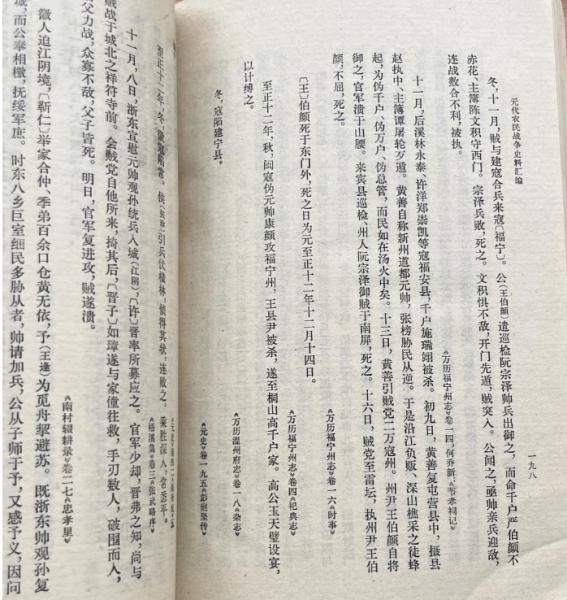 元代农民战争史料汇编
一九八
冬，十一月，贼与建寇合兵来寇〔福宁〕。公〔王伯颜〕遣巡检阮宗泽帅兵出御之，而命千户严伯颜不
赤花、主簿陈文积守西门。宗泽兵败，死之。文积惧不敌，开门先遁，贼突入。公闻之，亟帅亲兵迎敌，
连战数合不利，被执。
《万历福宁州志》卷一四，何乔新《 孝祠记》
十一月，后溪林永泰、许洋郑崇凯等寇福安县，千户施瑞翊被杀。初九日，黄善复屯营县中，摄县
赵执中、主簿谭屠轮歹遁。黄善自称新州道都元帅，张榜胁民从逆。于是沿江负贩、深山樵采之徒蜂
起，为伪千户、伪万户、伪总管，而民如在汤火中矣。十三日，黄善引贼党二万寇州。州尹王伯颜自将
御之，官军溃于山腰。来宾县巡检、州人阮宗泽御贼于南屏，死之。十六日，贼党至雷坛，执州尹王伯
颜，不屈，死之。
《万历福宁州志》卷一六《时事》
〔王〕伯颜死于东门外，死之日为元至正十二年十二月十四日。
《万历福宁州志》卷四《祀典志》
至正十二年，秋，闽寇伪元帅康颜攻福宁州，王县尹被杀，遂至桐山高千户家。高公玉天璧设宴，
以计缚之。
《万历温州府志》卷一八《杂志》
冬，寇陷建宁县。
《元史》卷一九五《彭庭坚传》
至正十二年，冬， 寇 常。侯 引兵伏横林，侦得其状，连败之。乘胜深入，常悉平。
卷二《张武略序》
十一月，八日，浙东宣慰元帅观孙统兵入城〔江阴〕，〔许〕晋率所募应之。官军少却，晋弗之知，尚与
贼战于城北之祥符寺前。会贼党自他所来，掎其后，〔晋子〕如璋遂与家僮往救，手刃数人，破围而入，
父力战，众寡不敌，父子皆死。明日，官军复进攻，贼遂溃。
《南村辍耕录》卷二七《忠孝里》
徽人迫江阴境，〔靳仁〕举家合仲、季弟百余口仓黄无依，予〔王逢〕为觅舟挈避苏。既浙东帅观孙复
城，而公奉相檄，抚绥军庶。时东八乡巨室细民多胁从者，帅请加兵，公从子师于予，又感予义，因问